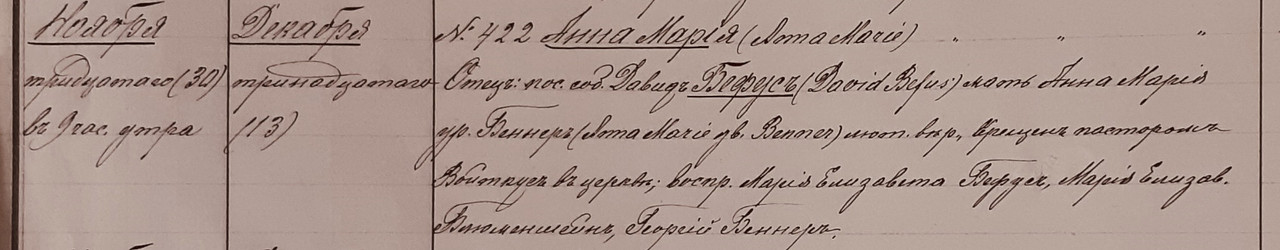 Ноября
тридцатаго (30)
въ 9 час. утра
Декабря
тринадцатаго
(13)
№ 422 Анна Марія (Anna Marie) " " "
Отецъ: пос. соб. Давидъ Бефусъ (David Befus) мать Анна Марія
ур. Беннеръ (Anna Marie gb. Benner) лют. вѣр., крещенъ пасторомъ
въ церкви; воспр. Марія Елизавета Бефусъ, Марія Елизав.
Блюменшейнъ, Георгій Беннеръ.